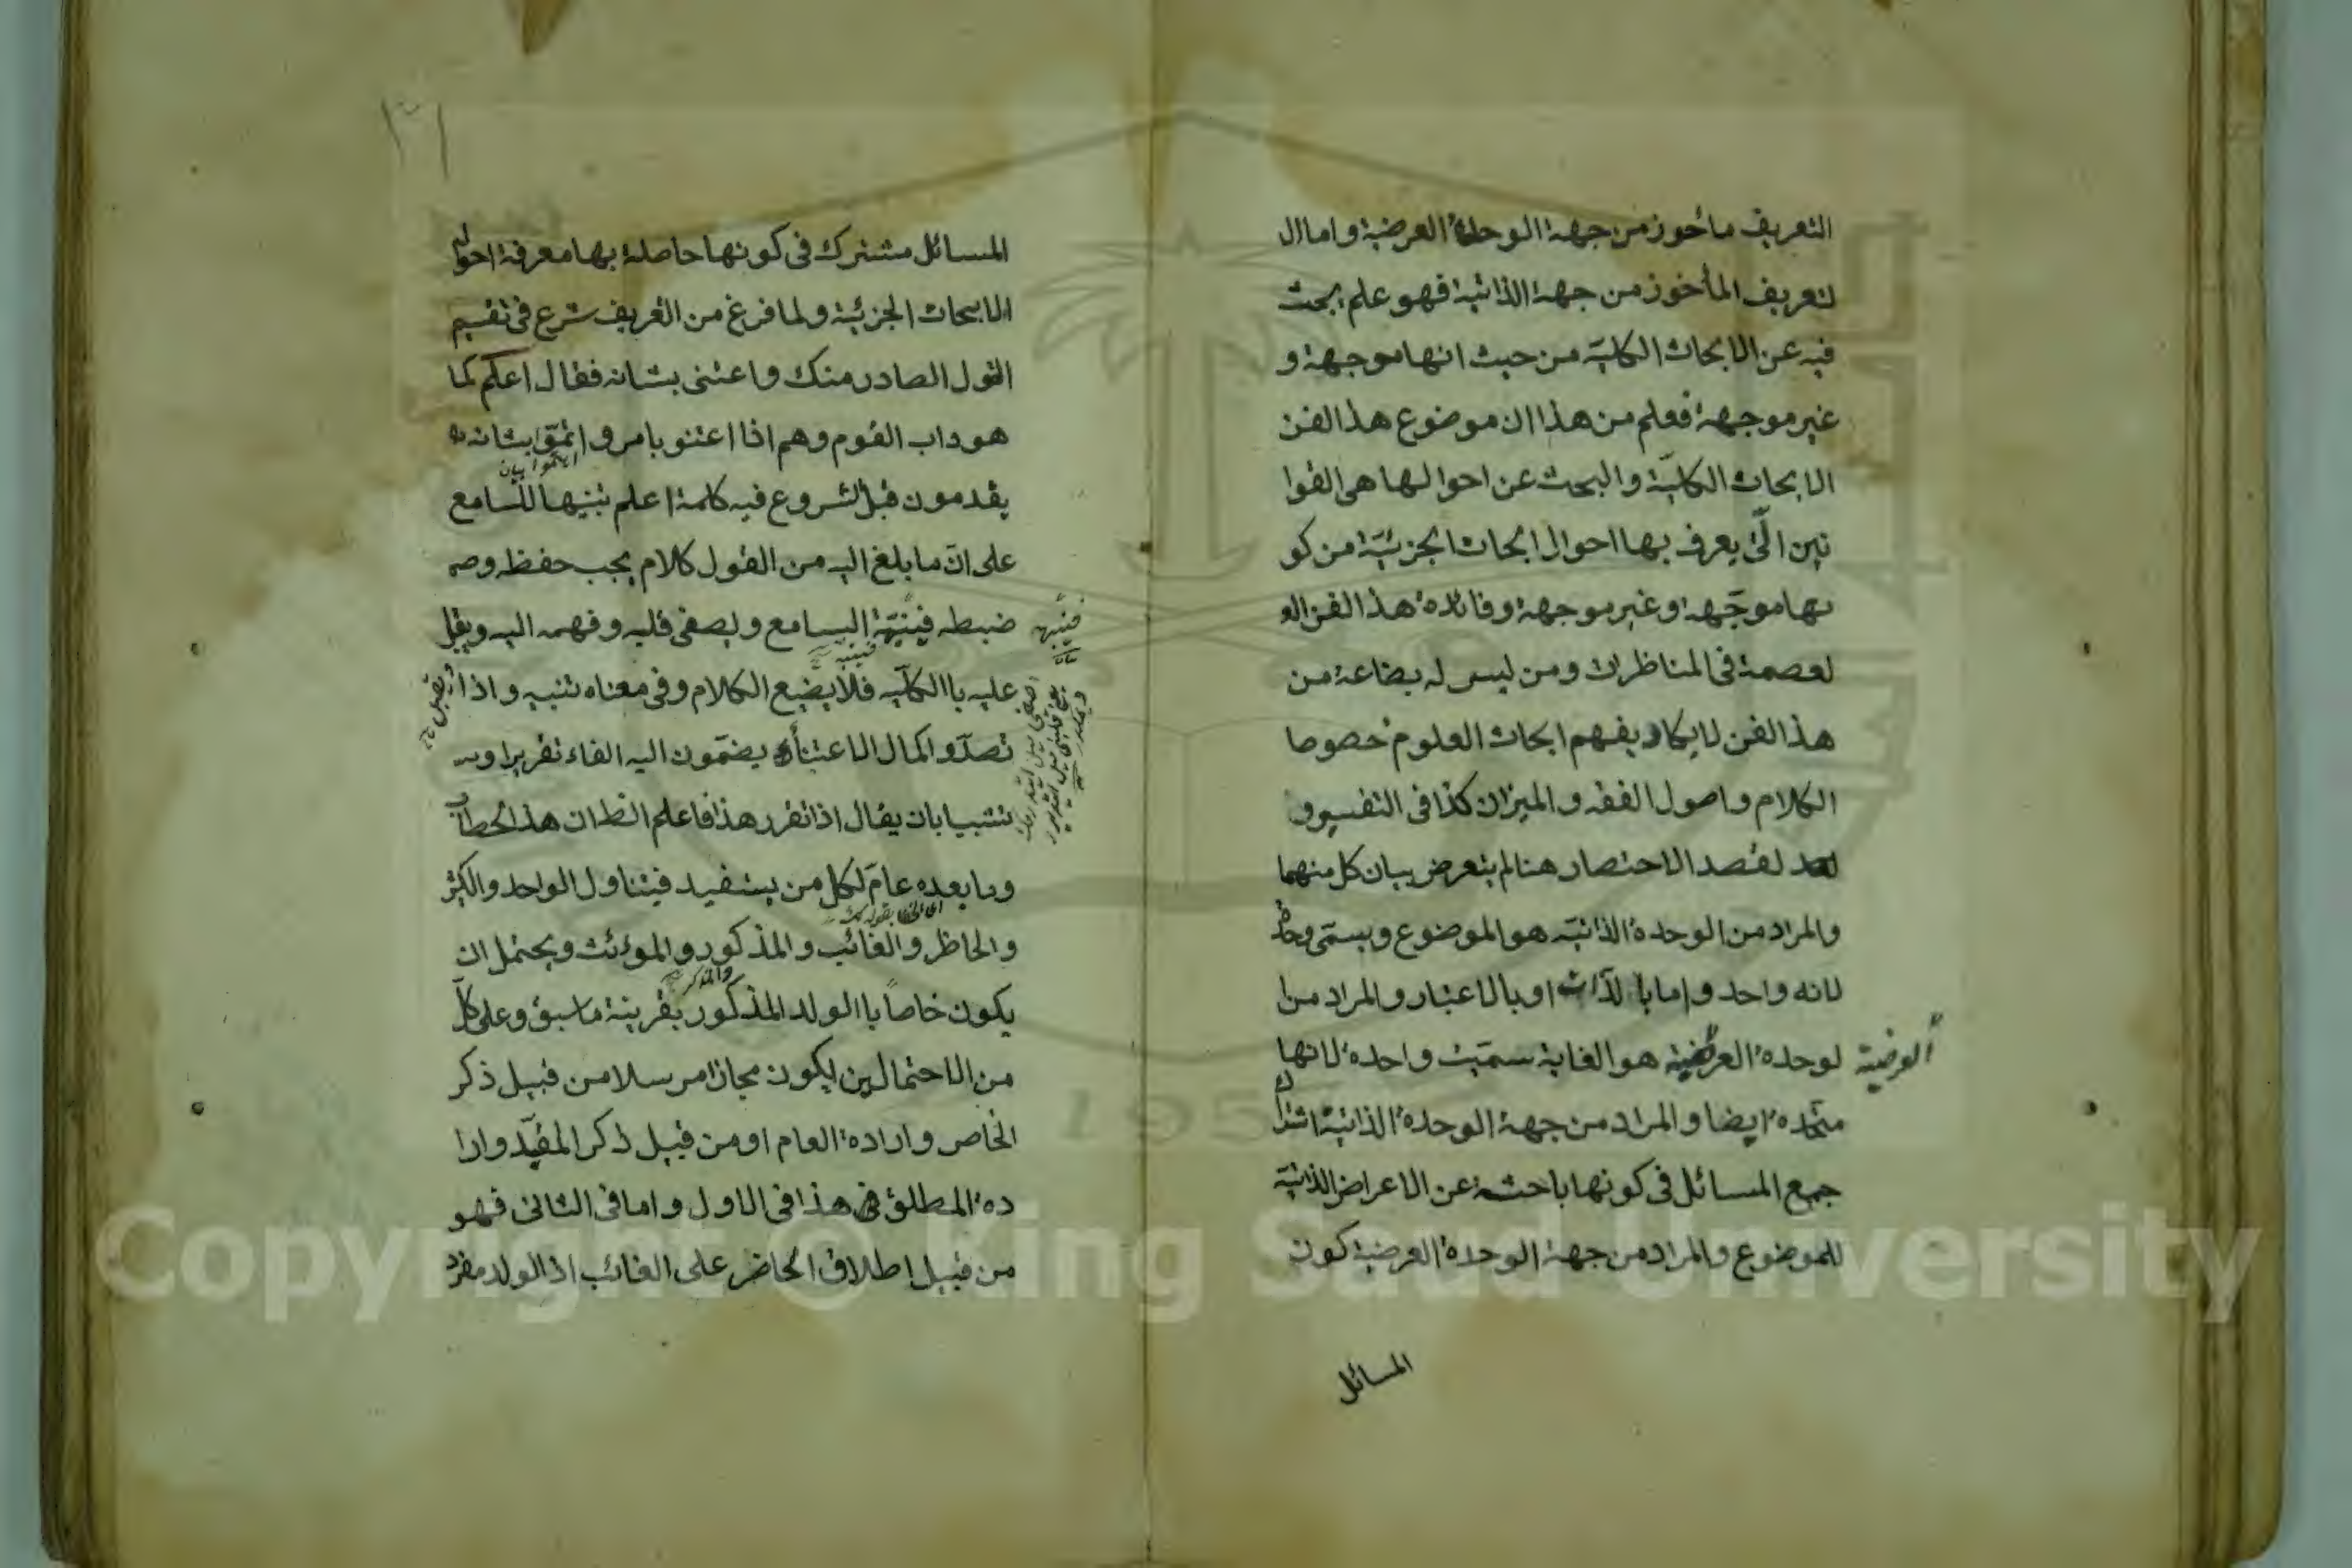 التعريف مأخوذ من جهة الوحدة العرضية واما ال
لتعريف المأخوذ من جهة الذاتية فهو علم يبحث
فيه عن الابحاث الكلية من حيث انها موجهة و
غير موجهة فعلم من هذا ان موضوع هذا الفن
الابحاث الكلية والبحث عن احوالها هى القوا
نين الّتى يعرف بها احوال ابحاث الجزئيّة من كو
نها موجّهة وغير موجهة وفائدة هذا الفن ال
لعصمة فى المناظرات ومن ليس له بضاعة من
هذا الفن لا يكاد يفهم ابحاث العلوم خصوصا
الكلام واصول الفقه والميزان كذا فى التفسير و
لقصد الاختصار هنا لم يتعرض ببيان كل منهما
والمراد من الوحدة الذاتيّة هو الموضوع ويسمّى وحدة
لانه واحد واما با لذات او بالاعتبار والمراد من ا
لوحدة العرضية هو الغاية سميّت واحدة لانها
العرضية
متحدة ايضا والمراد من جهة الوحدة الذاتية اشتراك
جميع المسائل فى كونها باحثة عن الاعراض الذاتيّة
للموضوع والمراد من جهة الوحدة العرضية كون
المسائل
المسائل مشترك فى كونها حاصلة بها معرفة احوال
الابحاث الجزئيّة ولما فرغ من التعريف شرع فى تقسيم
القول الصادر منك واعتنى بشانه فقال اعلم كما
هو داب القوم وهم اذا اعتنو بامر و بشانه
يقدمون قبل الشروع فيه كلمة اعلم تنبيها للسامع
على انّ ما يبلغ اليه من القول كلام يجب حفظه و
ضبطه فينبّه السامع ويصغى قلبه وفهمه اليه ويقبل
فينبه
عليه با الكليّه فلا يضيع الكلام وفى معناه تنبيه واذا
تصدّو اكمال الاعتناء يضمّون اليه الفاء تقريرا و
تنبيبا بان يقال اذا تقرر هذا فاعلم الظ ان هذا الخطاب
وما بعده عامّ لكل من يستفيد فيتناول الواحد والكثير
والحاظر والغائب والمذكور والموءنث ويحتمل ان
والمذكر
يكون خاصاً با الولد المذكور بقرينة ما سبق وعلى كلّ
من الاحتمالين يكون مجازا مرسلا من قبيل ذكر
الخاص وارادة العام او من قبيل ذكر المقيّد وارا
دة المطلق هذا فى الاول واما فى الثانى فهو
من قبيل اطلاق الحاضر على الغائب اذ الولد مفرد
Copyright © King Saud University
195